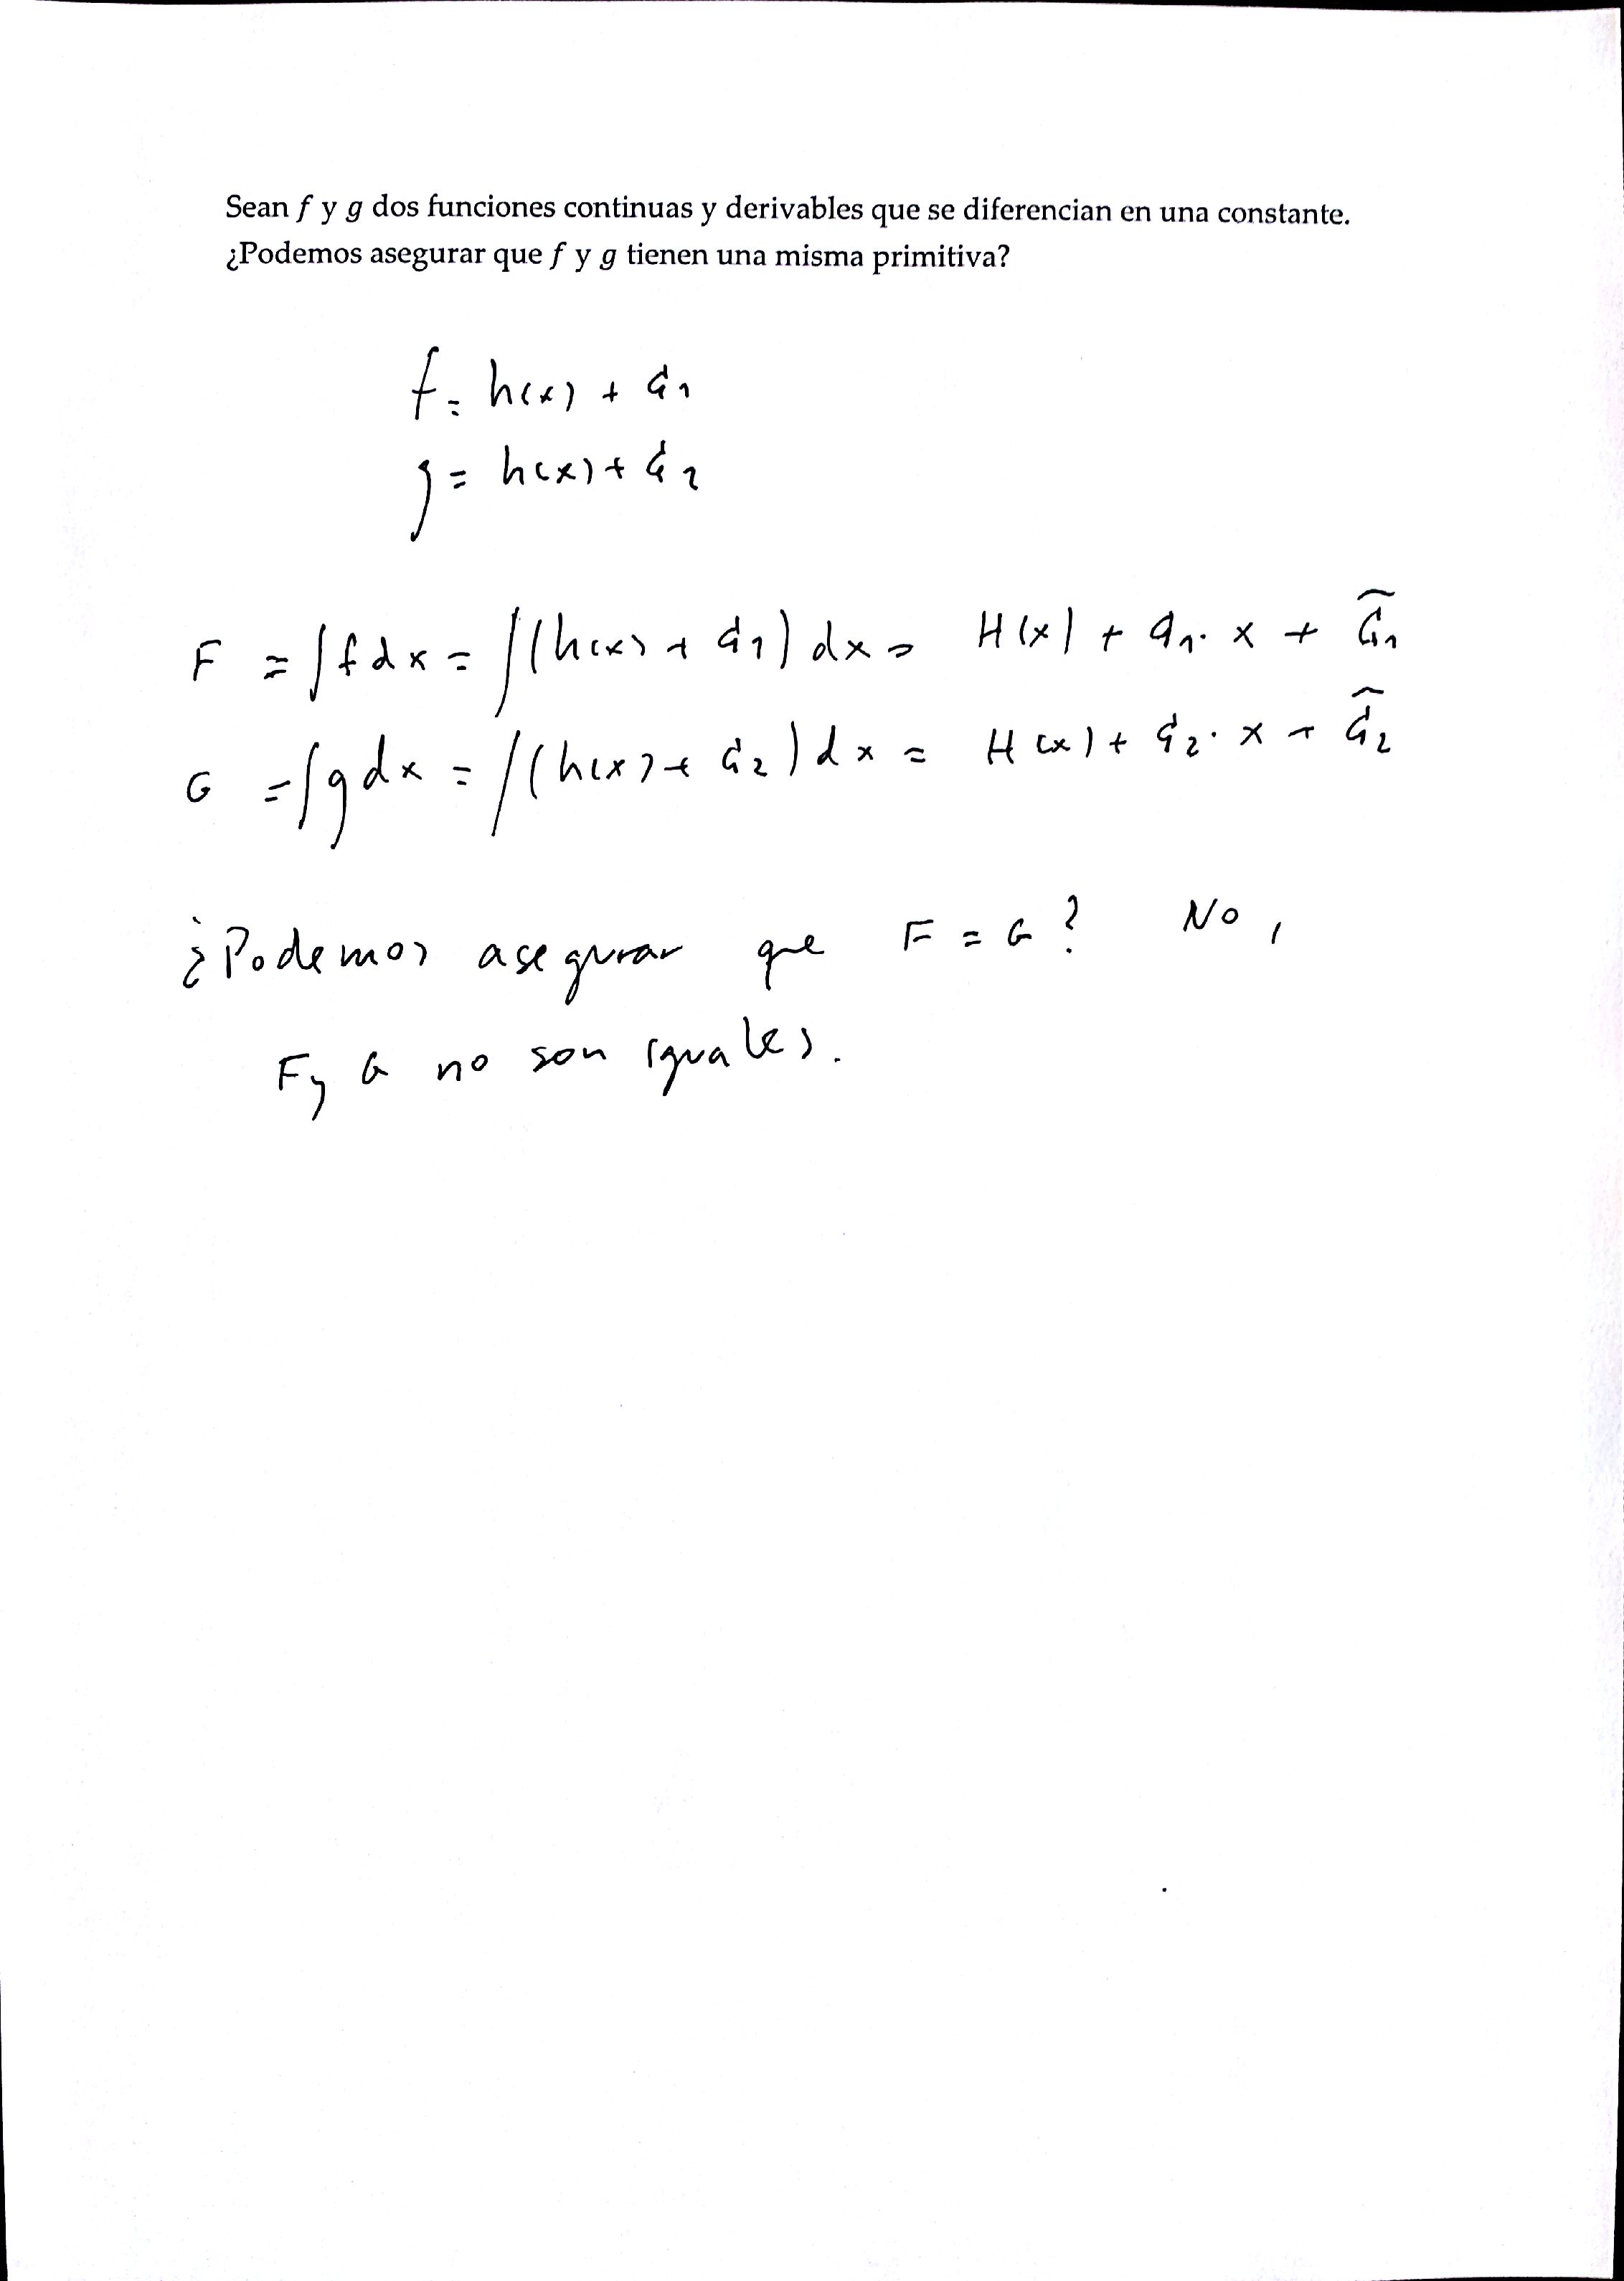 Sean f y g dos funciones continuas y derivables que se diferencian en una constante.
¿Podemos asegurar que f y g tienen una misma primitiva?
f = h(x) + G₁
g = h(x) + G₂
F = ∫f dx = ∫(h(x) + G₁) dx = H(x) + G₁· x + G̃₁
G = ∫g dx = ∫(h(x) + G₂) dx = H(x) + G₂· x + G̃₂
¿Podemos asegurar que F = G? No,
F y G no son iguales.